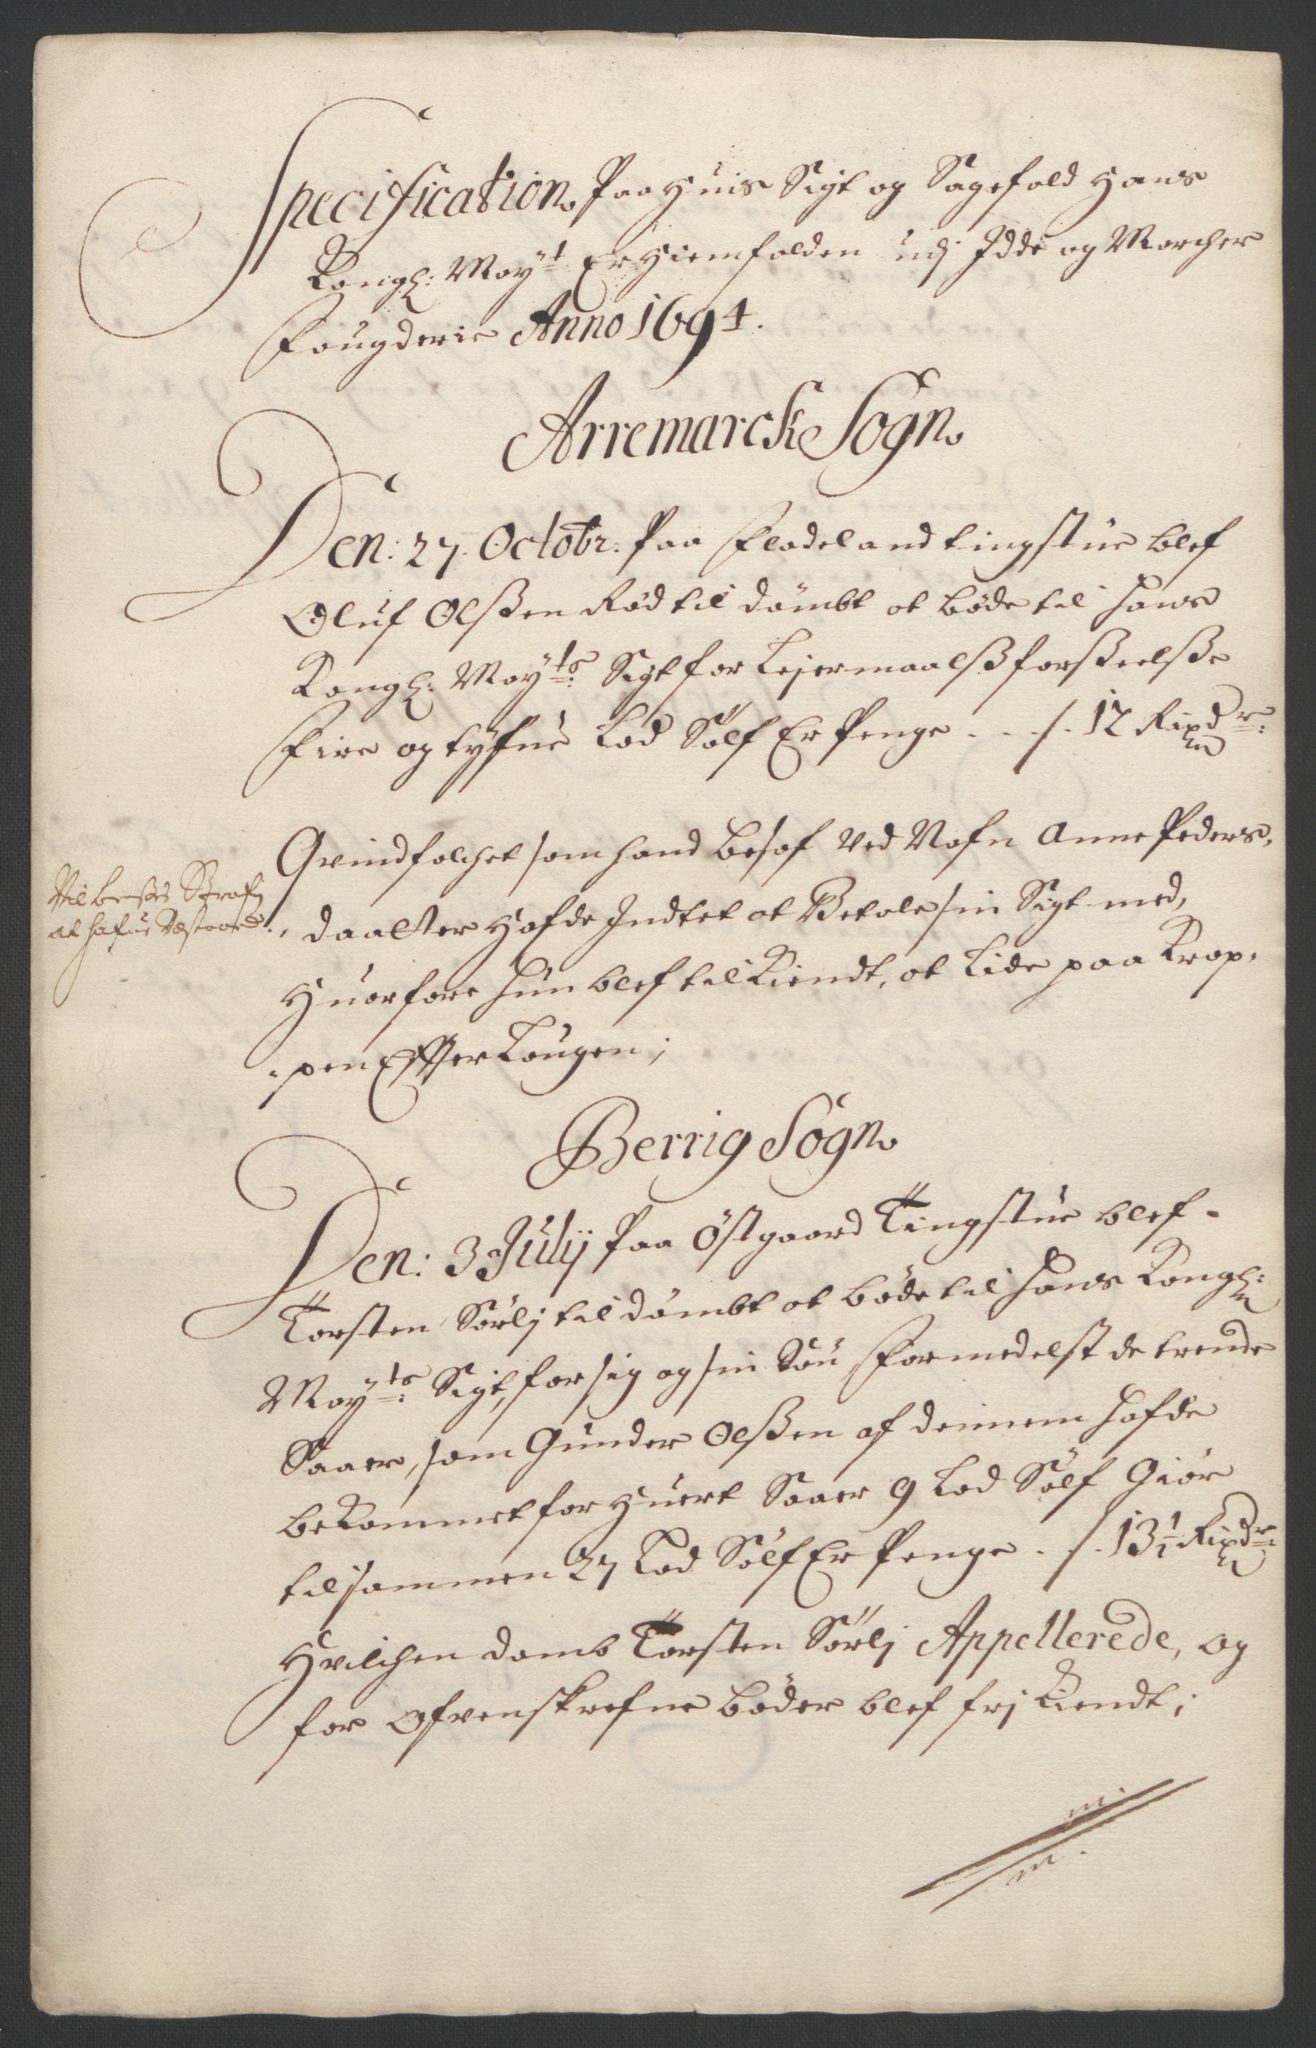 Specification Paa Huis Sigt og Sagefald Hans
Kongl: May:t Er Hiemfalden udj Idde og Marcher
Fougderie Anno 1694.
Arremarck Sogn
Den: 27. Octobr. Paa Fladeland tingstue blef
Oluf Olßen Rød til dømbt at bøde til Hans
Kongl: May:ts Sigt for Lejermaalß forßeelße
Fire og tyfue Lod Sølf Er Penge . . . /. 12 Rixdr:
Qvindfolchet som hand besof Ved Nafn Anne Peders,
, daatter Hafde Indtet at Betale sin Sigt med,
Huorfore hun blef tilkiendt, at Lide paa Krop,
, pen Effter Lougen;
Vil bevises Straf
at hafue
Berrig Sogn
Den: 3 Julij Paa Østgaard Tingstue blef
Torsten Sørlj til dømbt at bøde til Hans Kongl:
May:ts Sigt, for sig og sin Søn formedelst de trende
Saaer, som Gunder Olßen af dennem hafde
bekommet for Huert Saaer 9 Lod Sølf Giør
tilsammen 27 Lod Sølf Er Penge . /. 13½ Rixdr:
Hvilchen domb Torsten Sørlj Appellerede, og
for ofvenskrefne bøder blef frj Kiendt;